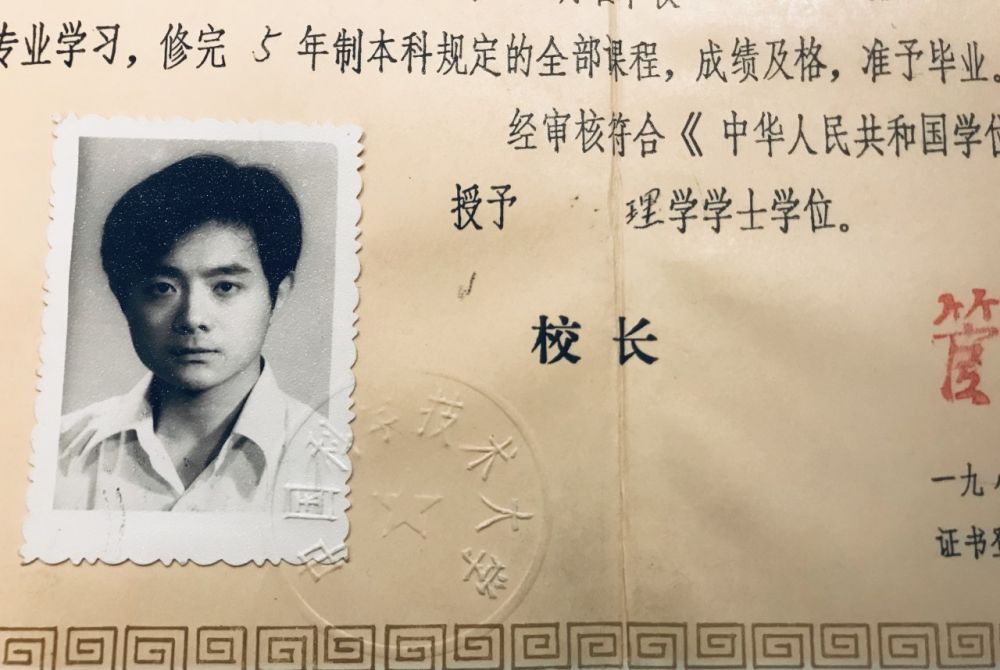 专业学习，修完 5 年制本科规定的全部课程，成绩及格，准予毕业。
经审核符合《中华人民共和国学位
授予 理学学士学位。
校长
管
一九八
证书登
中国科学技术大学